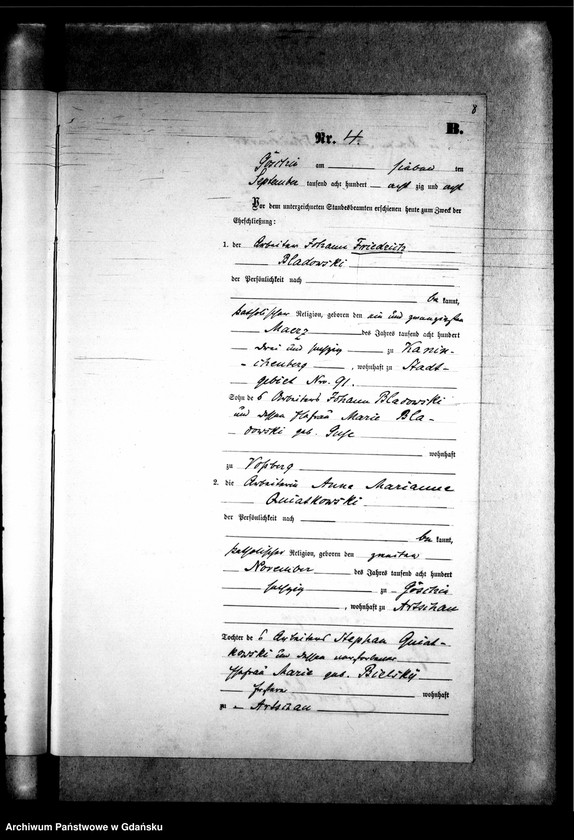 8
B.
Nr. 4.
Göschin am sieben ten
September tausend acht hundert acht zig und acht
Vor dem unterzeichneten Standesbeamten erschienen heute zum Zweck der
Eheschließung:
1. der Arbeiter Johann Friedrich
Bladowski
der Persönlichkeit nach
be kannt,
katholischer Religion, geboren den ein und zwanzigsten
Maerz des Jahres tausend acht hundert
drei und sechzig zu Kanin-
chenberg, wohnhaft zu Stadt-
gebiet Nro. 91.
Sohn des Arbeiters Johann Bladowski
und dessen Ehefrau Marie Bla-
dowski geb.
wohnhaft
zu Voßberg
2. die Arbeiterin Anna Marianne
Quiatkowski
der Persönlichkeit nach
be kannt,
katholischer Religion, geboren den zweiten
November des Jahres tausend acht hundert
sechzig zu Göschin
, wohnhaft zu Artschau
Tochter des Arbeiters Stephan Quiat-
kowski und dessen verstorbene
Ehefrau Marie geb. Bielski
wohnhaft
zu Artschau
Archiwum Państwowe w Gdańsku